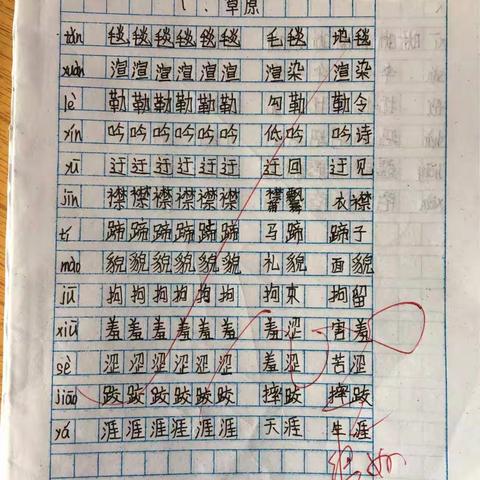 1、草原
tǎn 毯毯毯毯毯毯 毛毯 地毯
xuàn 渲渲渲渲渲渲 渲染 渲染
lè 勒勒勒勒勒勒 勾勒 勒令
yín 吟吟吟吟吟吟 低吟 吟诗
yū 迂迂迂迂迂迂 迂回 迂见
jīn 襟襟襟襟襟襟 衣襟
tí 蹄蹄蹄蹄蹄蹄 马蹄 蹄子
mào 貌貌貌貌貌貌 礼貌 面貌
jū 拘拘拘拘拘拘 拘束 拘留
xiū 羞羞羞羞羞羞 羞涩 害羞
sè 涩涩涩涩涩涩 羞涩 苦涩
jiāo 跤跤跤跤跤跤 摔跤 摔跤
yá 涯涯涯涯涯涯 天涯 生涯